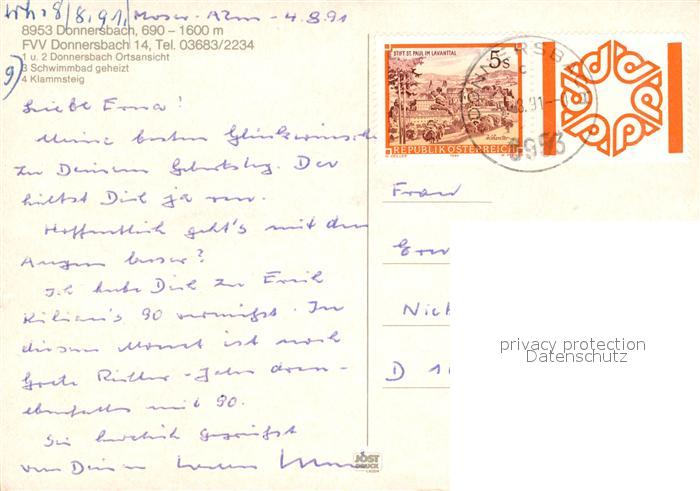 8/8.91, Moser-Alm - 4.8.91
8953 Donnersbach, 690 - 1600 m
FVV Donnersbach 14, Tel. 03683/2234
1 u. 2 Donnersbach Ortsansicht
3 Schwimmbad geheizt
4 Klammsteig
9)
Liebe Erna!
Meine besten Glückwünsche
zu Deinem Geburtstag. Du
hältst Dich ja
Hoffentlich geht's mit den
Augen besser?
Ich habe Dich zu Erich
Kilian's 90 vermisst. In
diesem Monat ist noch
Grete dran -
ebenfalls mit 90.
Sei herzlich gegrüsst
von Deinem
JÖST
DRUCK
STIFT ST. PAUL IM LAVANTTAL
5s
REPUBLIK ÖSTERREICH
DONNERSBACH
c
8.91
8953
Frau
D 1
privacy protection
Datenschutz